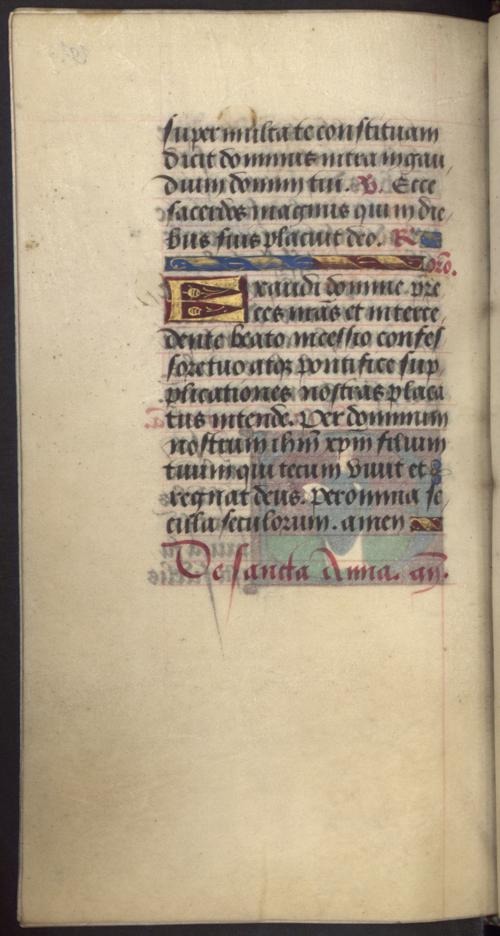 super multa te constituam
dicit dominus intra in gau
dium domini tui. V. Ecce
sacerdos magnus qui in die
bus suis placuit deo. R
Oro.
Exaudi domine pre
ces nr̃as et interce
dente beato
confes
sore tuo atqꝫ pontifice sup
plicationes nostras placa
tus intende. Per dominum
nostrum ihm̃ xpm̃ filium
tuum qui tecum vivit et
regnat deus. per omnia se
cula seculorum. amen
De sancta Anna. añ.